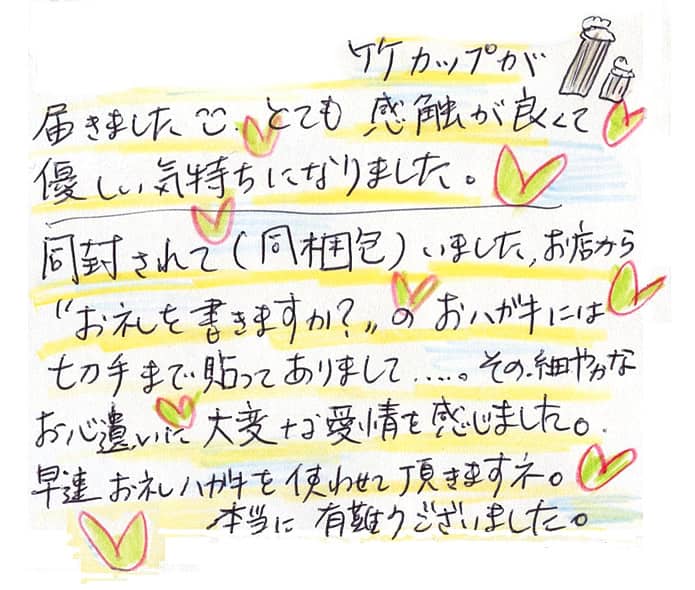 竹カップが
届きました とても 感触が良くて
優しい気持ちになりました。
同封されて(同梱包)いました、お店から
"お礼を書きますか?"の おハガキには
切手まで貼ってありまして.....。その細やかな
お心遣いに 大変なお愛情を感じました。
早速 お礼ハガキを使わせて頂きますネ。
本当に 有難うございました。